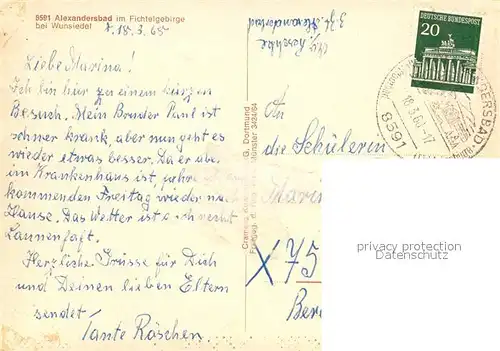 8591 Alexandersbad im Fichtelgebirge
bei Wunsiedel
18.3.68
Liebe Marina!
Ich bin hier zu einem kurzen
Besuch. Mein Bruder Paul ist
schwer krank, aber nun geht es
wieder etwas besser. Da er aber
im Krankenhaus ist, fahre ich am
kommenden Freitag wieder nach
Hause. Das Wetter ist auch recht
launenhaft.
Herzliche Grüsse für Dich
und Deinen lieben Eltern
sendet
Tante Röschen.
Cramers Dortmund
Freigeg. d. Münster 3424/64
DEUTSCHE BUNDESPOST
20
8591
18.3.68-17
DERSBAD
An
die Schülerin
Marin
X 75
Ber
privacy protection
Datenschutz